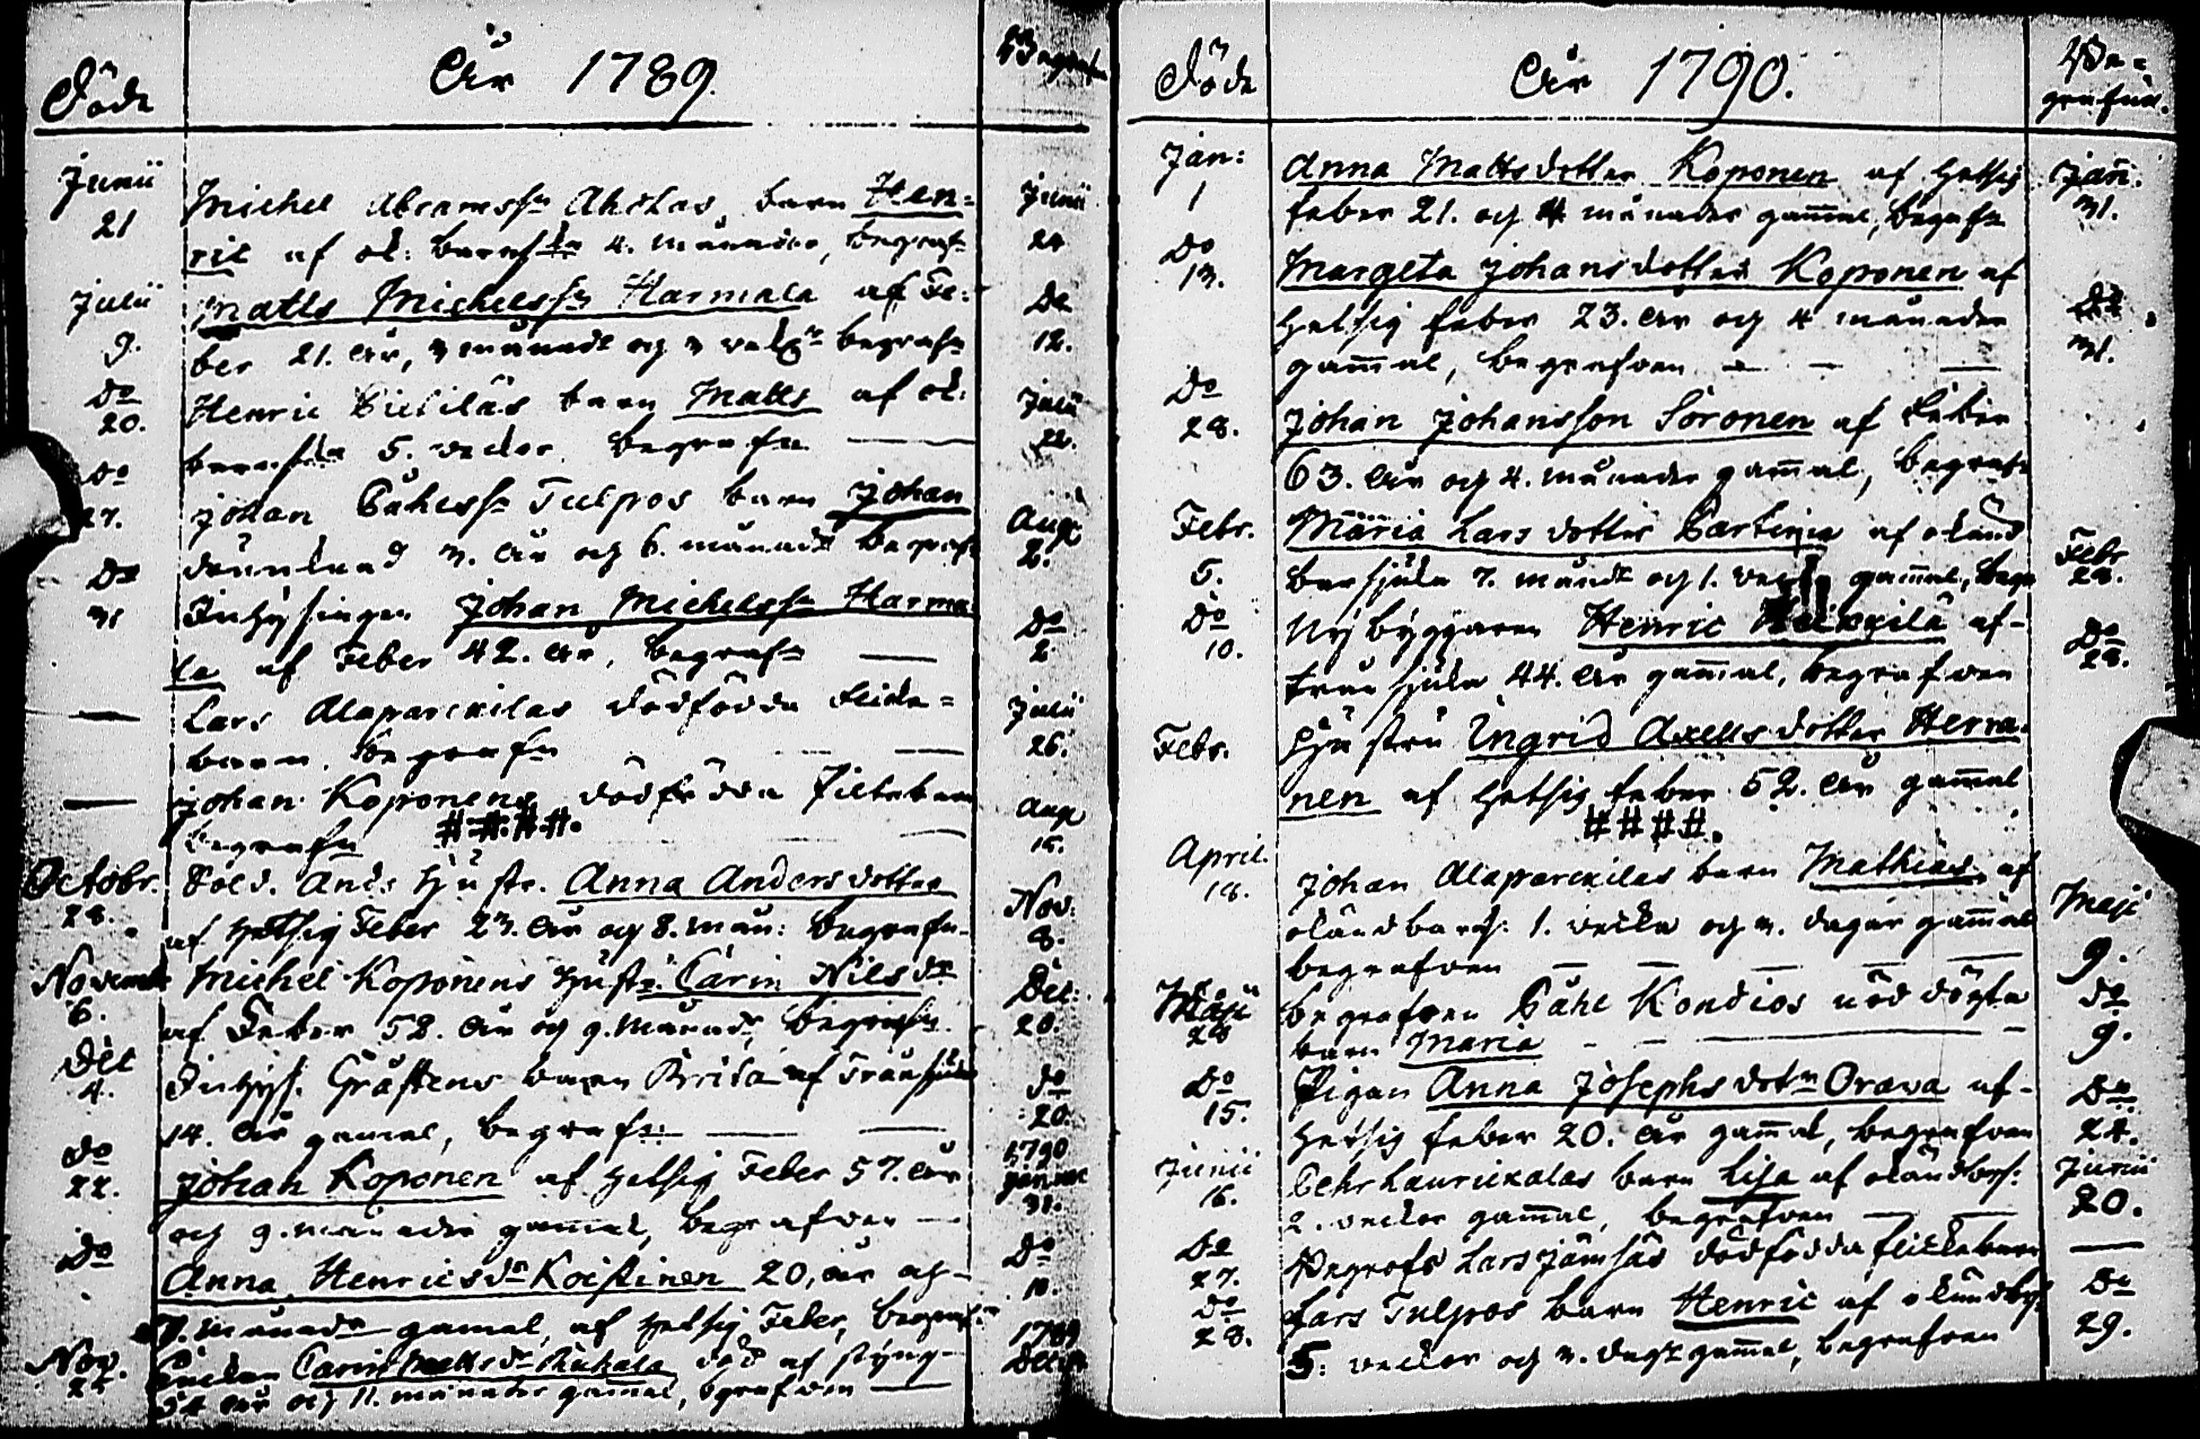 Döde
År 1789.
Begrafn
Junii
21
Michel Abramss:n Aholas barn Hen=
ric af ok: barnsj:a 4. månader, begrafn
Junii
24
Julii
9.
Matts Michelss:n Harmala af Fe:
ber 21. år, 3 månad: och 3 begrafn
Do
12.
Do
20.
Henric Pietiläs barn Matts af ok:
5. veckor begrafn
Julii
22.
Do
27.
Johan Påhlss:n Tulpos barn Johan
3. år och 6. månad: begrafn
Aug
2.
Do
31
Inhysingen Johan Michelss:n Harma
la af Feber 42. år, begrafn
Do
2
Lars Alaparckilas dödfödda flicke=
barn. begrafn
Julii
26.
Johan Koponens dödfödda
begrafn # # # #.
Aug
16.
Octobr.
28.
Sold. And: Hustr. Anna Andersdotter
af Hetsig Feber 23. år och 8. mån: begrafn
Nov:
8.
Novemb
6.
Michel Koponens Hustr. Carin Nilsdr
af Feber 52. år och 9. månad: begrafn.
Dec:
20.
Dec
4.
Inhys. Gråstens barn Brita af Trånsjuka
14. år gamal, begrafn:
Do
20.
Do
22.
Johan Koponen af Hetsig Feber 57. år
och 9. månader gamal, begrafven
1790
Januar
31.
Do
Anna Henricsdr Koistinen 20, år och
7. månader gamal, af Hetsig Feber, begrafn
Do
10.
Nov.
22
Enckan Carin Mattsdr död af styng
54 år och 11. månader gamal, bgrafven
1789
Decbr
Döde
År 1790.
Be=
grafne.
Jan:
1
Anna Mattsdotter Koponen af Hetsig
feber 21. och 4 månader gammal, begrafn
Jan.
31.
Do
13.
Margeta Johansdotter Koponen af
Hetsig feber 23. år och 4 månader
gammal, begrafven
Do
31.
Do
28.
Johan Johansson Soronen af Feber
63. år och 4. månader gammal, begrafn
Febr.
5.
Maria Larsdotter Partinen af okänd
barnsjuka 7. månd: och 1. vecka gammal, begr
Febr
28.
Do
10.
Nybyggaren Henric Heickilä af
trånsjuka 44. år gammal, begrafven
Do
28.
Febr.
Hustru Ingrid Axellsdotter Herra
nen af Hetsig feber 52. år gammal
# # # #.
April.
18.
Johan Alaparckilas barn Mathias af
okänd barnsj: 1. vecka och 3. dagar gammal
begrafven
Maji
9.
Maji
28
begrafven Påhl Kondios nöddögta
barn Maria
Do
9.
Do
15.
Pigan Anna Josephsdotr Orava af
Hetsig feber 20. år gammal, begrafven
Do
24.
Junii
16.
Pehr Laurickalas barn Lisa af okänd bsj:
2. veckor gammal, begrafven
Junii
20.
Do
27.
Begrofs Lars Jämsäs dödfödda flickebarn
Do
28.
Lars Tulpos barn Henric af okänd bsj
5: veckor och 3. dagr gammal, begrafven
Do
29.